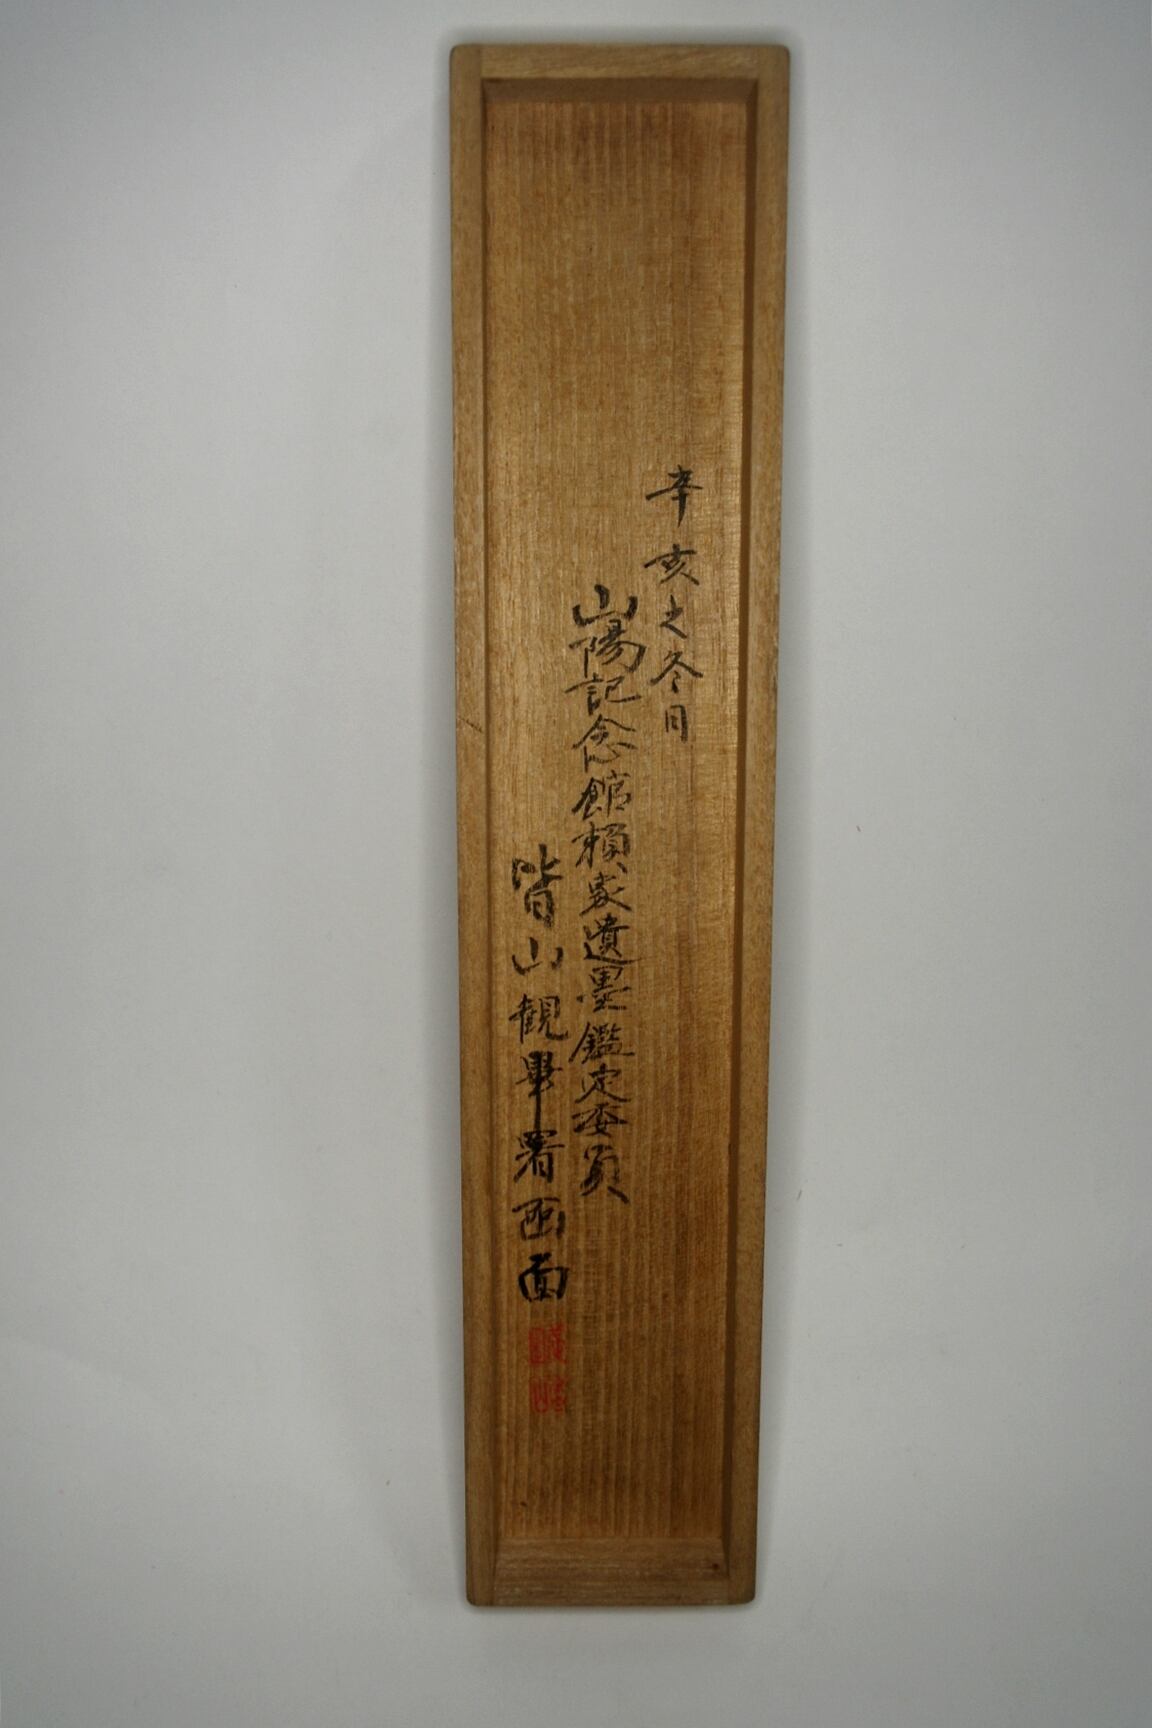 辛亥之冬日
山陽記念館頼家遺墨鑑定委員
皆山観畢署函面